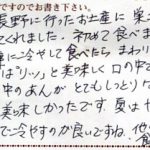 ですのでお書き下さい。
長野に行ったお土産に栗
てくれました。初めて食べま
に冷やして食べたら、まわり
ば「パリッ」と美味しく口の中で
中のあんがとてもしっとりた
美味しかったです。夏は
で冷やすのが良いですね。他